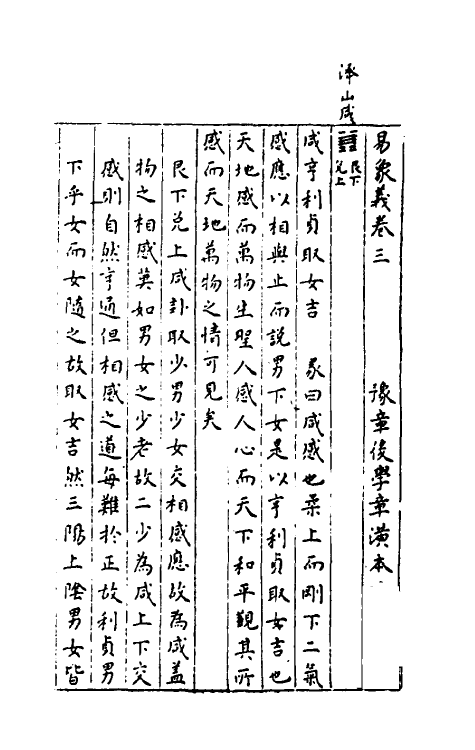 易象義卷三 豫章後學章潢本
澤山咸
䷞ 艮下
兌上
咸亨利貞取女吉 彖曰咸感也柔上而剛下二氣
感應以相與止而說男下女是以亨利貞取女吉也
天地感而萬物生聖人感人心而天下和平觀其所
感而天地萬物之情可見矣
艮下兌上咸卦取少男少女交相感應故為咸蓋
物之相感莫如男女之少老故二少為咸上下交
感則自然亨通但相感之道每難於正故利貞男
下乎女而女隨之故取女吉然三陽上陰男女皆